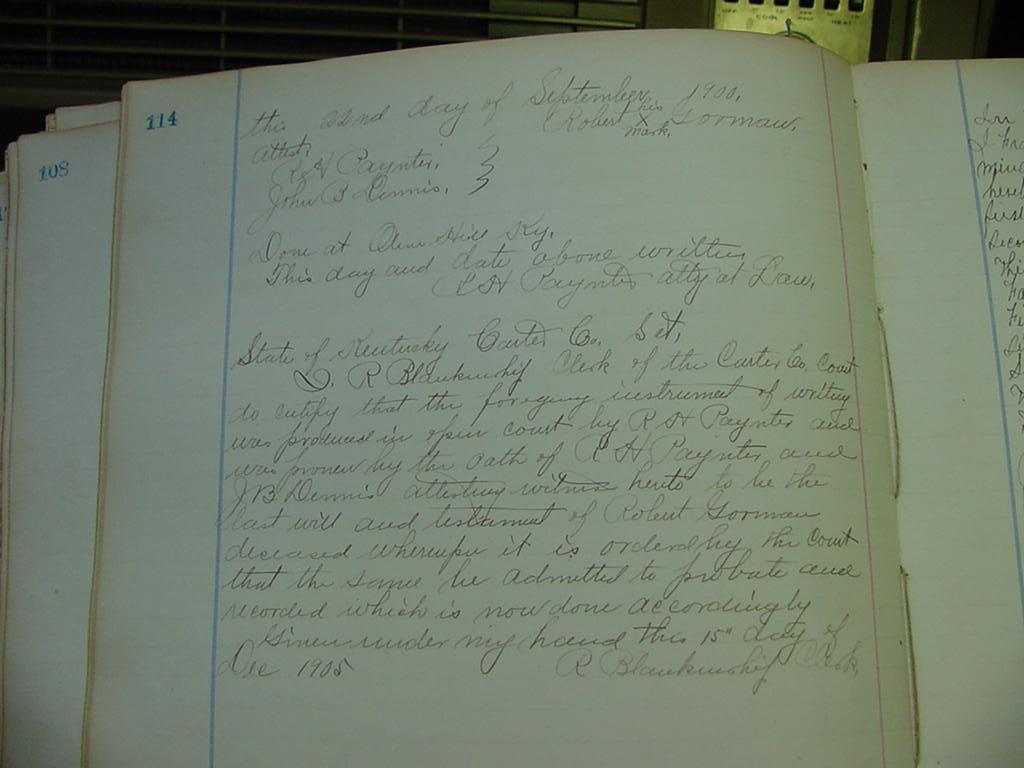 114
108
this 22nd day of September 1900.
his
Robert X Gorman.
mark.
Attest,
R H Paynter,
John B Dennis,
Done at Olive Hill Ky,
This day and date above written
R H Paynter atty at Law,
State of Kentucky Carter Co. Set,
I, R Blankenship Clerk of the Carter Co, Court
do certify that the foregoing instrument of writing
was produced in open court by R H Paynter and
was proven by the oath of R H Paynter and
J B Dennis attesting witness hereto to be the
last will and testament of Robert Gorman
deceased whereupon it is ordered by the Court
that the same be admitted to probate and
recorded which is now done accordingly
Given under my hand this 15" day of
Dec 1905
R Blankenship Clerk,